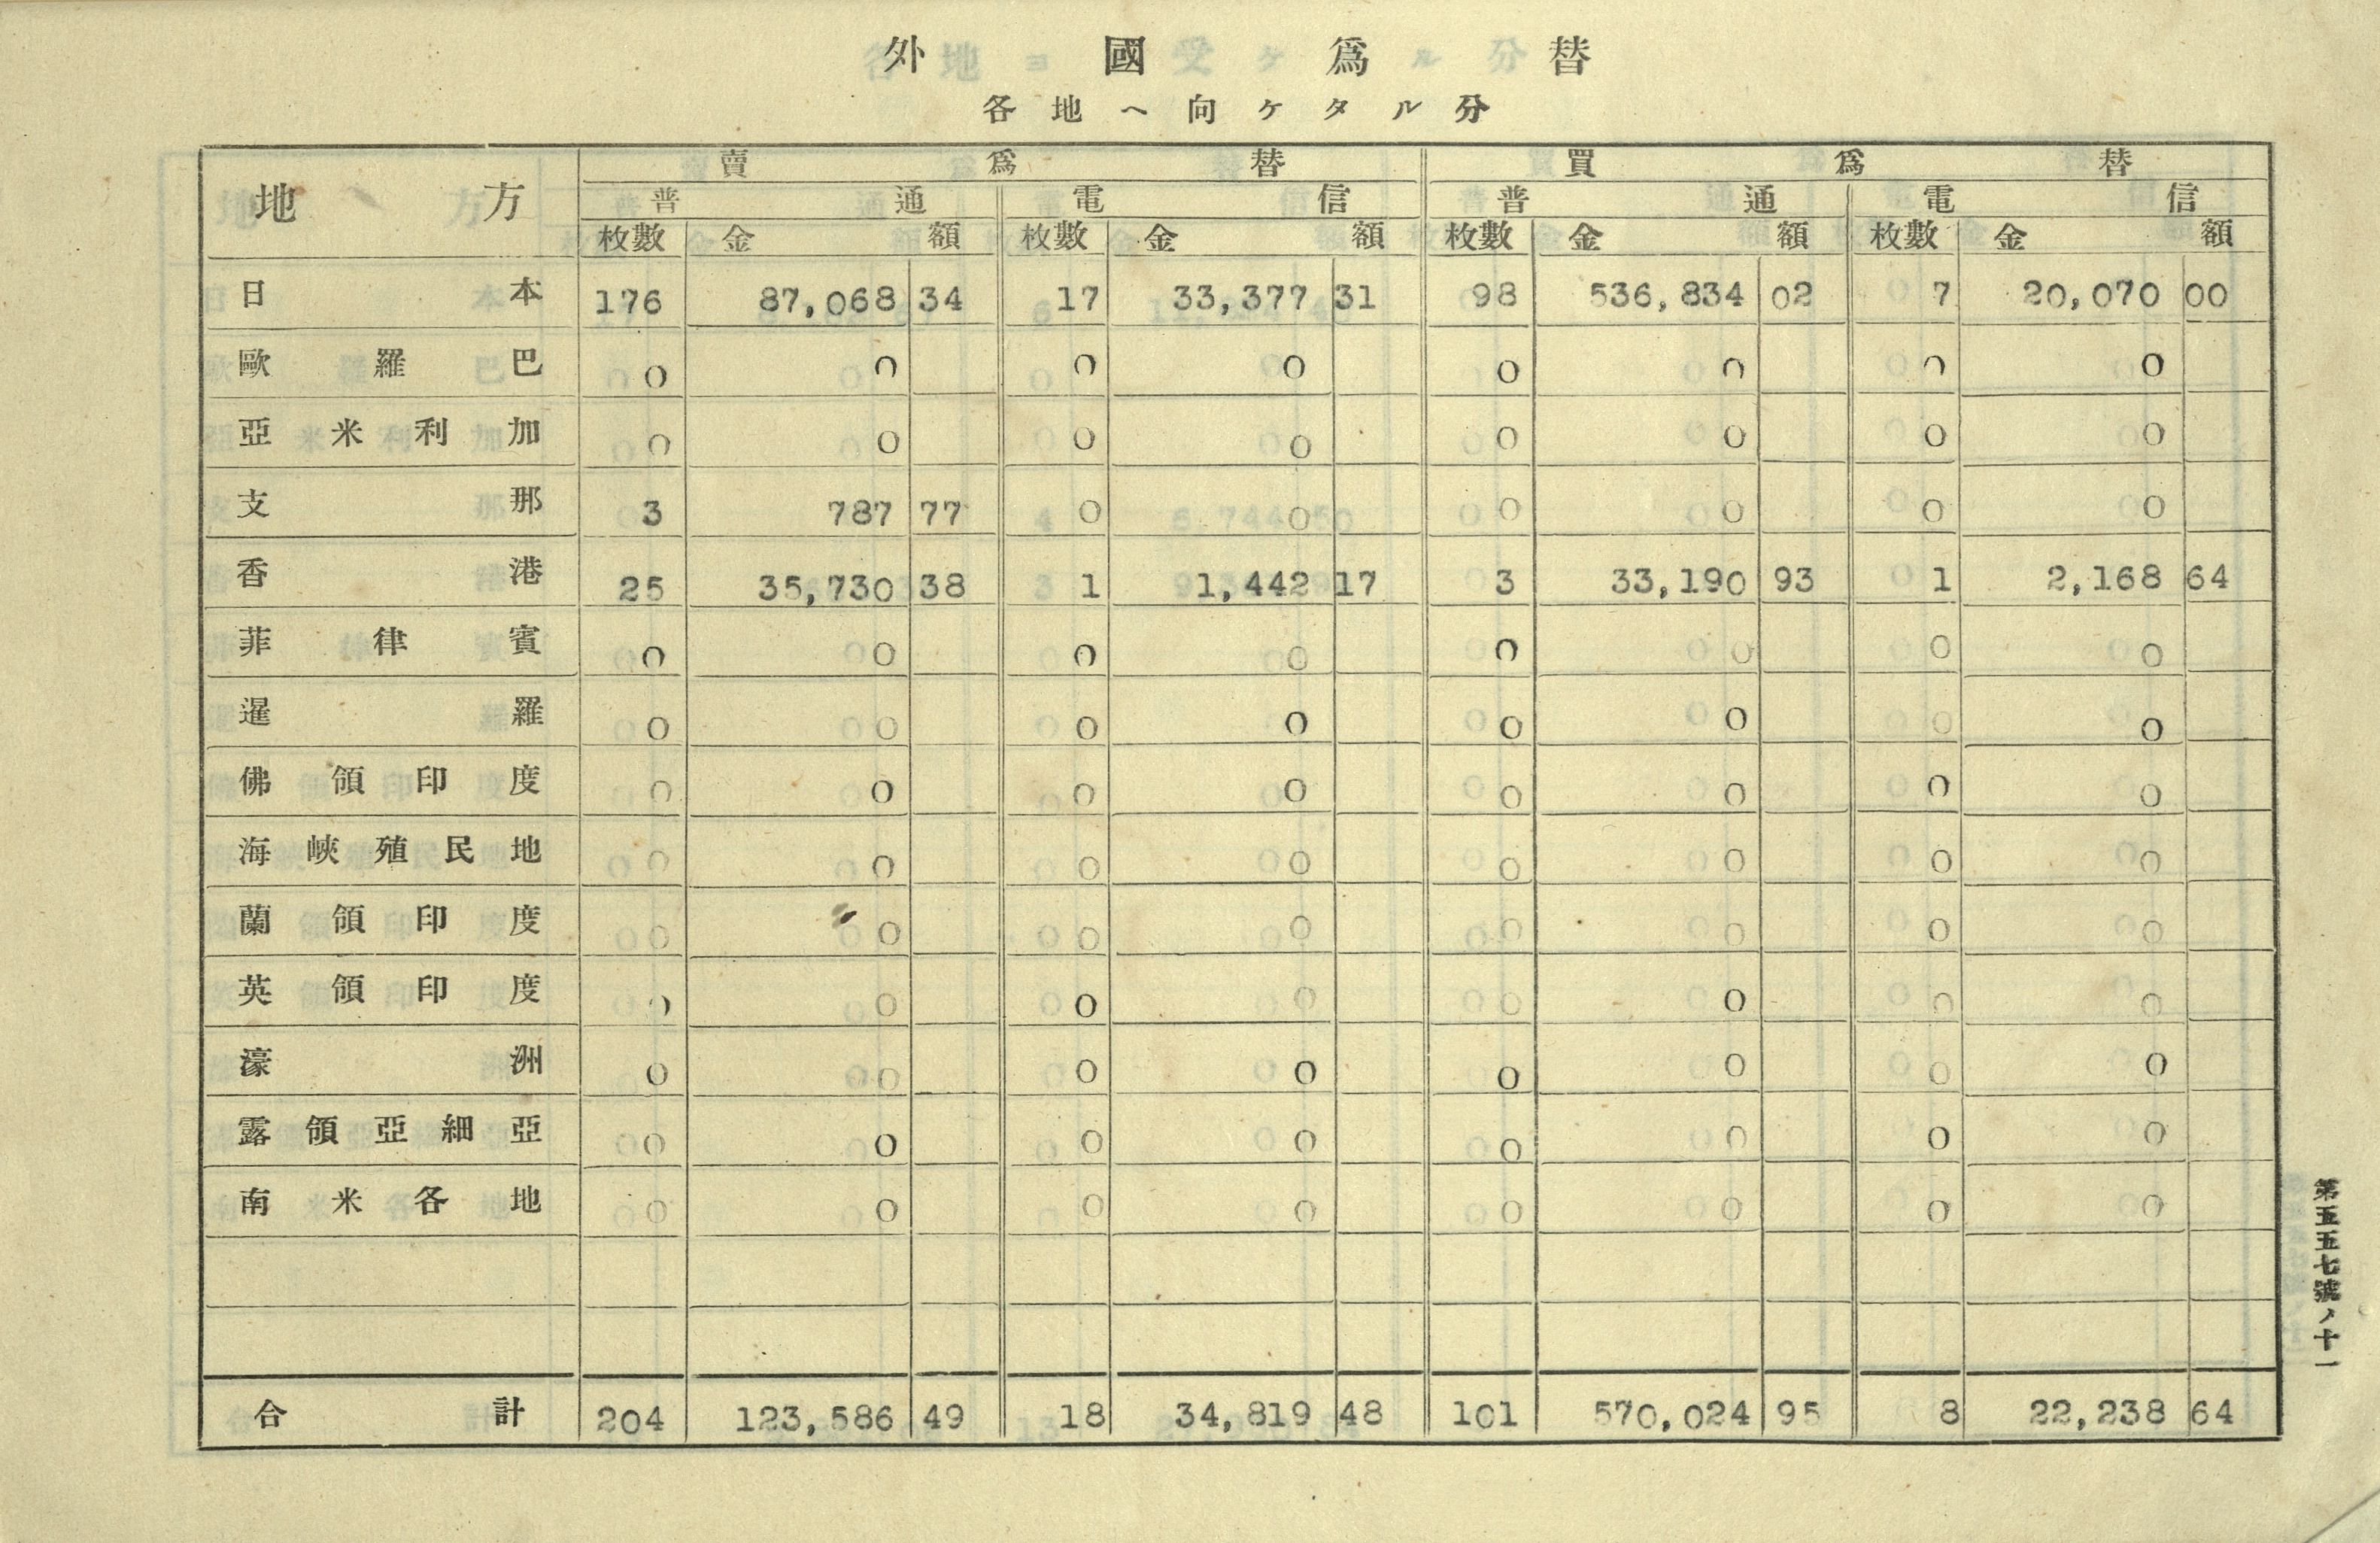 外國爲替
各地ヘ向ケタル分
地方 賣爲替 買爲替
普通 電信 普通 電信
枚數 金額 枚數 金額 枚數 金額 枚數 金額
日本 176 87,068 34 17 33,377 31 98 536,834 02 7 20,070 00
歐羅巴 0 0 0 0 0 0 0 0
亞米利加 0 0 0 0 0 0 0 0
支那 3 787 77 0 0 0 0 0 0
香港 25 35,730 38 1 1,442 17 3 33,190 93 1 2,168 64
菲律賓 0 0 0 0 0 0 0 0
暹羅 0 0 0 0 0 0 0 0
佛領印度 0 0 0 0 0 0 0 0
海峽殖民地 0 0 0 0 0 0 0 0
蘭領印度 0 0 0 0 0 0 0 0
英領印度 0 0 0 0 0 0 0 0
濠洲 0 0 0 0 0 0 0 0
露領亞細亞 0 0 0 0 0 0 0 0
南米各地 0 0 0 0 0 0 0 0
合計 204 123,586 49 18 34,819 48 101 570,024 95 8 22,238 64
第五五七號ノ十一